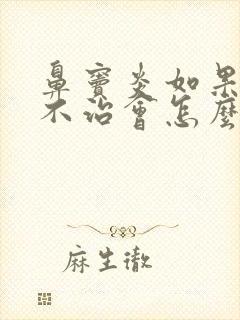 鼻竇炎如果
不治會怎麼
麻生徹